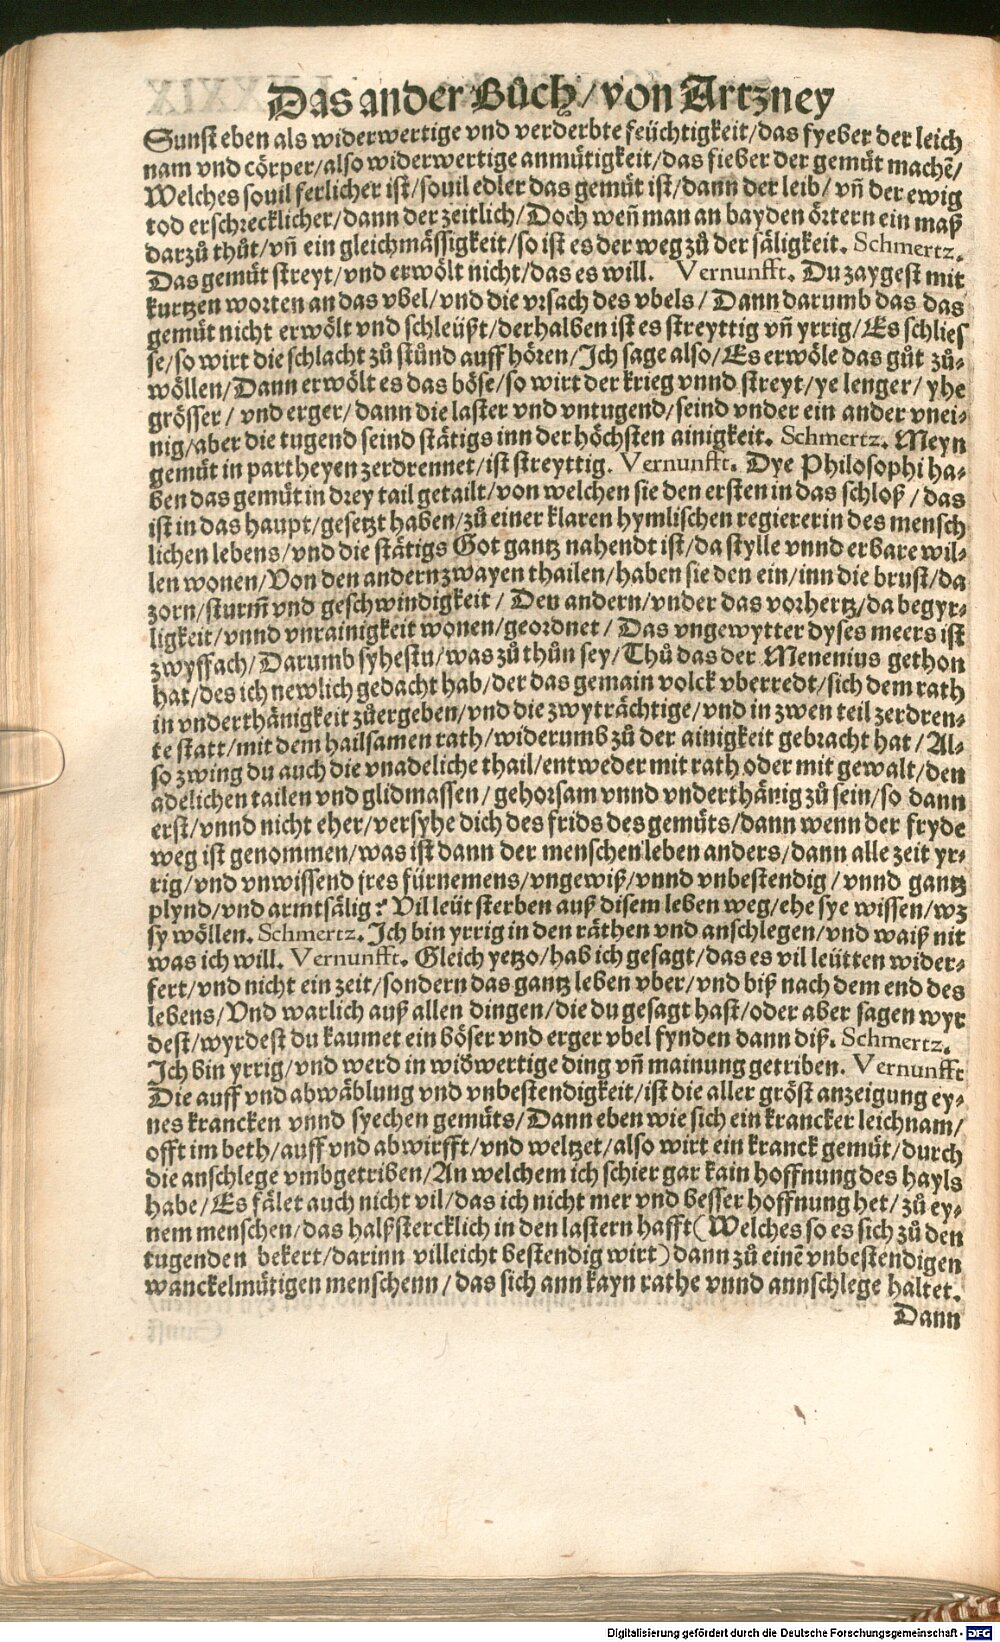 Das ander Bůch/ von Artzney
Sunst eben als widerwertige vnd verderbte feüchtigkeit/das fyeber der leich
nam vnd cörper/also widerwertige anmůtigkeit/das fieber der gemüt machẽ/
Welches souil ferlicher ist/souil edler das gemüt ist/dann der leib/ vñ der ewig
tod erschrecklicher/dann der zeitlich/Doch weñ man an bayden örtern ein maß
darzů thůt/vñ ein gleichmässigkeit/so ist es der weg zů der säligkeit. Schmertz.
Das gemüt streyt/vnd erwölt nicht/das es will. Vernunfft. Du zaygest mit
kurtzen worten an das vbel/vnd die vrsach des vbels/ Dann darumb das das
gemüt nicht erwölt vnd schleüßt/derhalben ist es streyttig vñ yrrig/Es schlies
se/so wirt die schlacht zů stůnd auff hören/Ich sage also/Es erwöle das gůt zů-
wöllen/Dann erwölt es das böse/so wirt der krieg vnnd streyt/ye lenger/ yhe
grösser/ vnd erger/dann die laster vnd vntugend/seind vnder ein ander vnei-
nig/aber die tugend seind stätigs inn der höchsten ainigkeit. Schmertz. Meyn
gemüt in partheyen zerdrennet/ist streyttig. Vernunfft. Dye Philosophi ha-
ben das gemüt in drey tail getailt/von welchen sie den ersten in das schloß/ das
ist in das haupt/gesetzt haben/zů einer klaren hymlischen regiererin des mensch
lichen lebens/vnd die stätigs Got gantz nahendt ist/da stylle vnnd erbare wil-
len wonen/Von den andern zwayen thailen/haben sie den ein/inn die brust/da
zorn/sturm̃ vnd geschwindigkeit/ Den andern/vnder das vorhertz/da begyr-
ligkeit/vnnd vnrainigkeit wonen/geordnet/ Das vngewytter dyses meers ist
zwyffach/Darumb syhestu/was zů thůn sey/Thů das der Menenius gethon
hat/des ich newlich gedacht hab/der das gemain volck vberredt/sich dem rath
in vnderthänigkeit zůergeben/vnd die zwyträchtige/vnd in zwen teil zerdren-
te statt/mit dem hailsamen rath/widerumb zů der ainigkeit gebracht hat/Al-
so zwing du auch die vnadeliche thail/entweder mit rath oder mit gewalt/den
adelichen tailen vnd glidmassen/gehorsam vnnd vnderthänig zů sein/so dann
erst/vnnd nicht eher/versyhe dich des frids des gemüts/dann wenn der fryde
weg ist genommen/was ist dann der menschen leben anders/dann alle zeit yr-
rig/vnd vnwissend jres fürnemens/vngewiß/vnnd vnbestendig/vnnd gantz
plynd/vnd armtsälig? Vil leüt sterben auß disem leben weg/ehe sye wissen/wz
sy wöllen. Schmertz. Ich bin yrrig in den räthen vnd anschlegen/vnd waiß nit
was ich will. Vernunfft. Gleich yetzo/hab ich gesagt/das es vil leütten wider-
fert/vnd nicht ein zeit/sondern das gantz leben vber/vnd biß nach dem end des
lebens/Vnd warlich auß allen dingen/die du gesagt hast/oder aber sagen wyr
dest/wyrdest du kaumet ein böser vnd erger vbel fynden dann diß. Schmertz.
Ich bin yrrig/vnd werd in wid̃wertige ding vñ mainung getriben. Vernunfft
Die auff vnd abwäblung vnd vnbestendigkeit/ist die aller gröst anzeigung ey-
nes krancken vnnd syechen gemüts/Dann eben wie sich ein krancker leichnam/
offt im beth/auff vnd abwirfft/vnd weltzet/also wirt ein kranck gemüt/durch
die anschlege vmbgetriben/An welchem ich schier gar kain hoffnung des hayls
habe/Es fälet auch nicht vil/das ich nicht mer vnd besser hoffnung het/zů ey-
nem menschen/das halßstercklich in den lastern hafft(Welches so es sich zů den
tugenden bekert/darinn villeicht bestendig wirt)dann zů einẽ vnbestendigen
wanckelmütigen menschenn/das sich ann kayn rathe vnnd annschlege haltet.
Dann
Digitalisierung gefördert durch die Deutsche Forschungsgemeinschaft - DFG